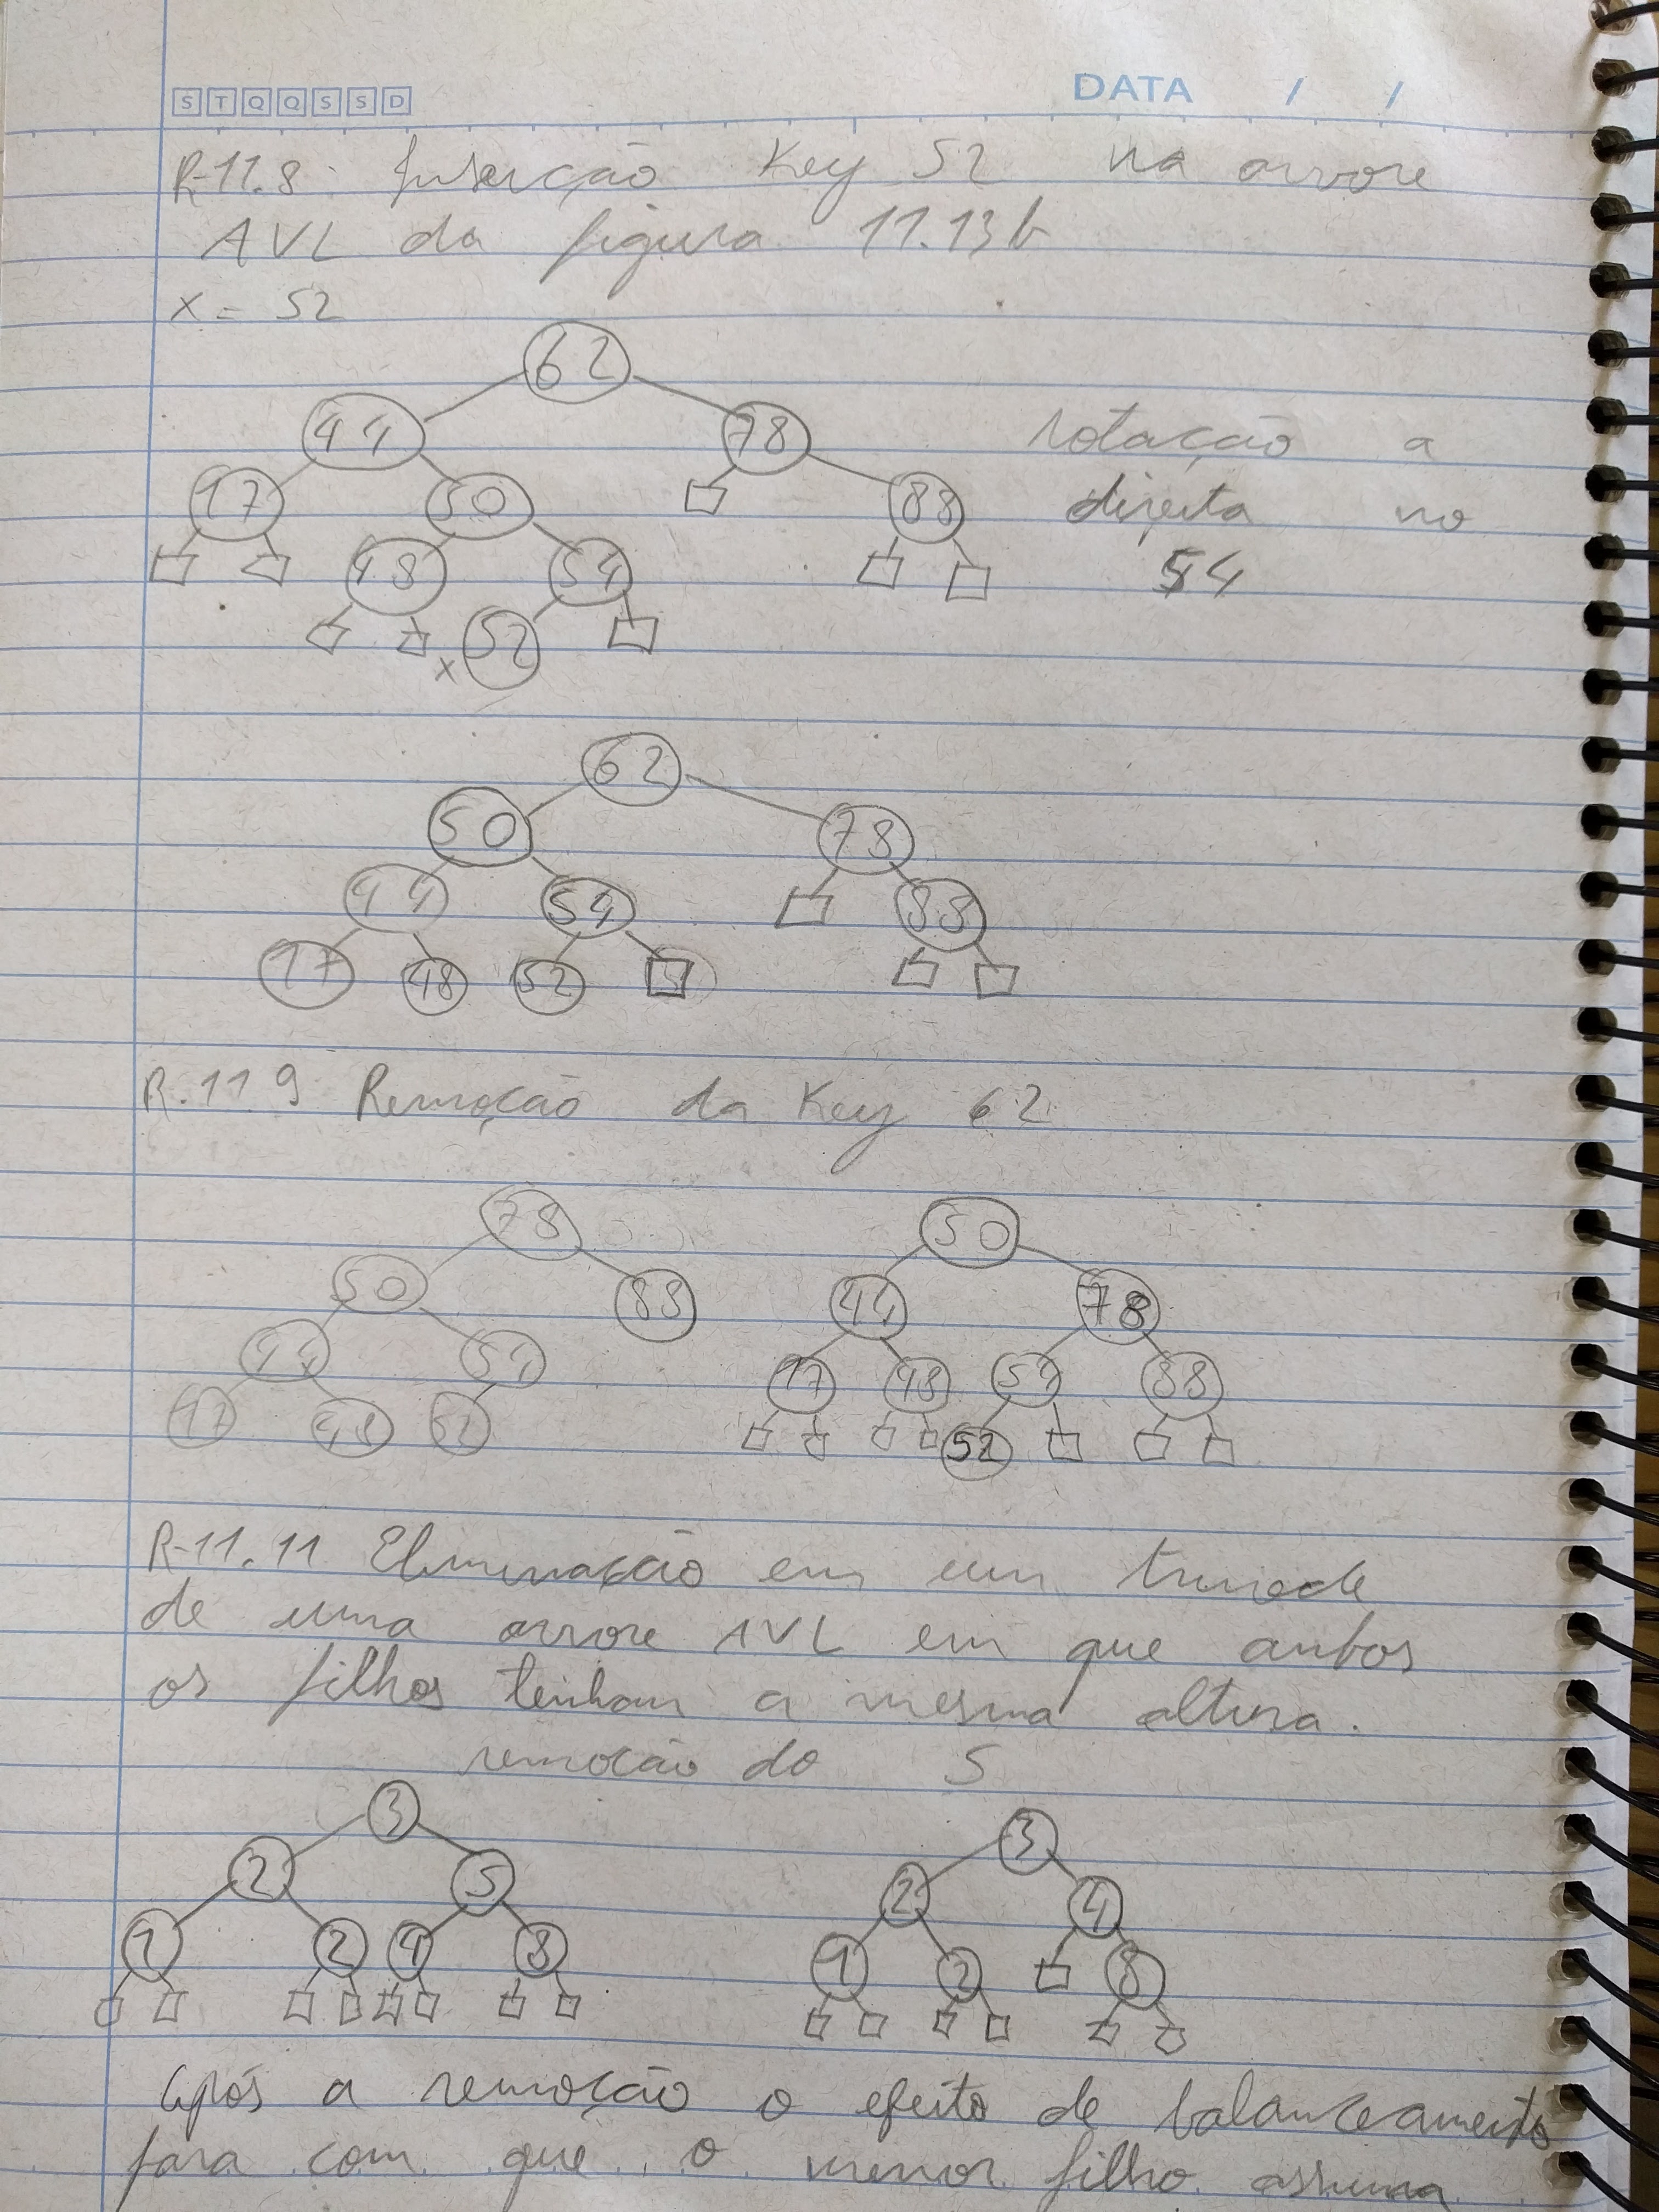 S T Q Q S S D DATA / /
R-11.8: Inserção Key 52 na arvore
AVL da figura 11.13b
x = 52
62
44 78 rotação a
17 50 88 direita no
48 54 54
x 52
62
50 78
44 54 88
17 48 52
R.11.9 Remoção da Key 62
78 50
50 88 44 78
44 54 17 48 54 88
17 48 52 52
R-11.11 Eliminação em um trinode
de uma arvore AVL em que ambos
os filhos tenham a mesma altura.
remoção do 5
3 3
2 5 2 4
1 2 4 8 1 2 8
Após a remoção o efeito de balanceamento
fara com que o menor filho assuma